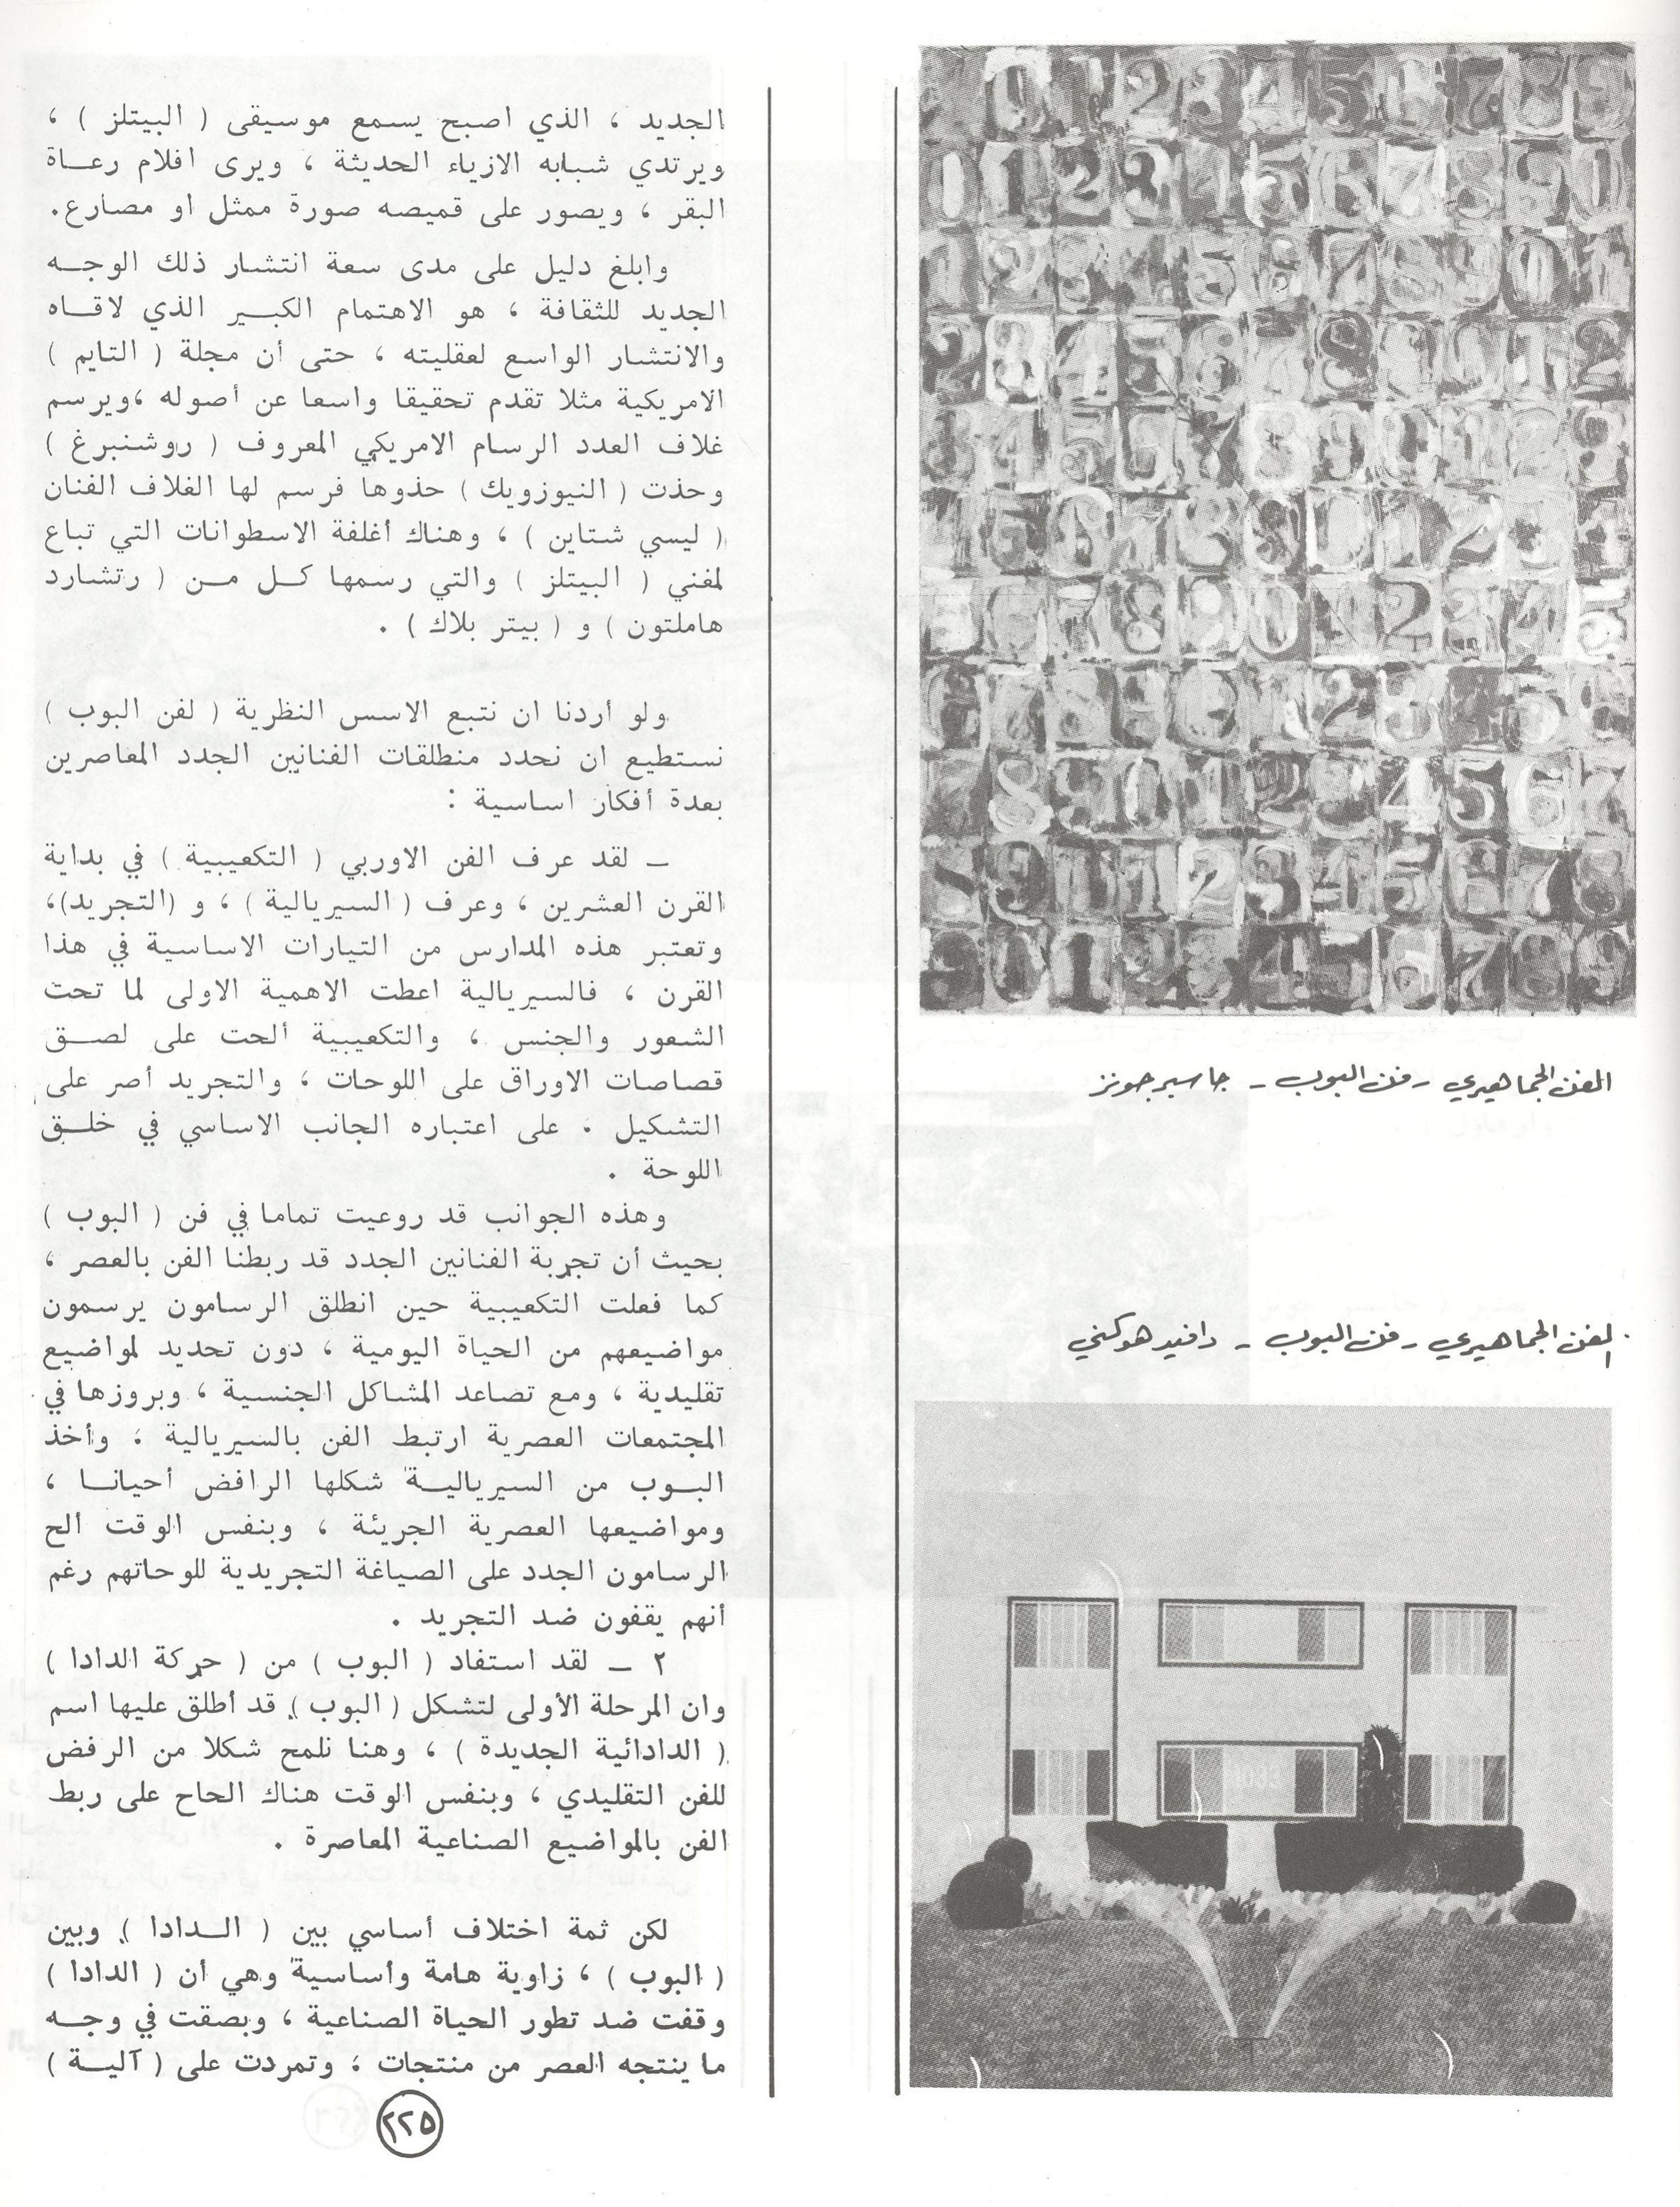 الفن الجماهيري - فن البوب - جاسبر جونز
الفن الجماهيري - فن البوب - دافيد هوكني
الجديد ، الذي اصبح يسمع موسيقى ( البيتلز ) ،
ويرتدي شبابه الازياء الحديثة ، ويرى افلام رعاة
البقر ، ويصور على قميصه صورة ممثل او مصارع.
وابلغ دليل على مدى سعة انتشار ذلك الوجه
الجديد للثقافة ، هو الاهتمام الكبير الذي لاقاه
والانتشار الواسع لعقليته ، حتى أن مجلة ( التايم )
الامريكية مثلا تقدم تحقيقا واسعا عن أصوله ،ويرسم
غلاف العدد الرسام الامريكي المعروف ( روشنبرغ )
وحذت ( النيوزويك ) حذوها فرسم لها الغلاف الفنان
( ليسي شتاين ) ، وهناك أغلفة الاسطوانات التي تباع
لمغني ( البيتلز ) والتي رسمها كل من ( رتشارد
هاملتون ) و ( بيتر بلاك ) .
ولو أردنا ان نتبع الاسس النظرية ( لفن البوب )
نستطيع ان نحدد منطلقات الفنانين الجدد المعاصرين
بعدة أفكار اساسية :
– لقد عرف الفن الاوربي ( التكعيبية ) في بداية
القرن العشرين ، وعرف ( السيريالية ) ، و (التجريد)،
وتعتبر هذه المدارس من التيارات الاساسية في هذا
القرن ، فالسيريالية اعطت الاهمية الاولى لما تحت
الشعور والجنس ، والتكعيبية ألحت على لصق
قصاصات الاوراق على اللوحات ، والتجريد أصر على
التشكيل . على اعتباره الجانب الاساسي في خلق
اللوحة .
وهذه الجوانب قد روعيت تماما في فن ( البوب )
بحيث أن تجربة الفنانين الجدد قد ربطنا الفن بالعصر ،
كما فعلت التكعيبية حين انطلق الرسامون يرسمون
مواضيعهم من الحياة اليومية ، دون تحديد لمواضيع
تقليدية ، ومع تصاعد المشاكل الجنسية ، وبروزها في
المجتمعات العصرية ارتبط الفن بالسيريالية ، وأخذ
البوب من السيريالية شكلها الرافض أحيانا ،
ومواضيعها العصرية الجريئة ، وبنفس الوقت ألح
الرسامون الجدد على الصياغة التجريدية للوحاتهم رغم
أنهم يقفون ضد التجريد .
٢ – لقد استفاد ( البوب ) من ( حركة الدادا )
وان المرحلة الأولى لتشكل ( البوب ) قد أطلق عليها اسم
( الدادائية الجديدة ) ، وهنا نلمح شكلا من الرفض
للفن التقليدي ، وبنفس الوقت هناك الحاح على ربط
الفن بالمواضيع الصناعية المعاصرة .
لكن ثمة اختلاف أساسي بين ( الدادا ) وبين
( البوب ) ، زاوية هامة وأساسية وهي أن ( الدادا )
وقفت ضد تطور الحياة الصناعية ، وبصقت في وجه
ما ينتجه العصر من منتجات ، وتمردت على ( آلية )
٢٢٥